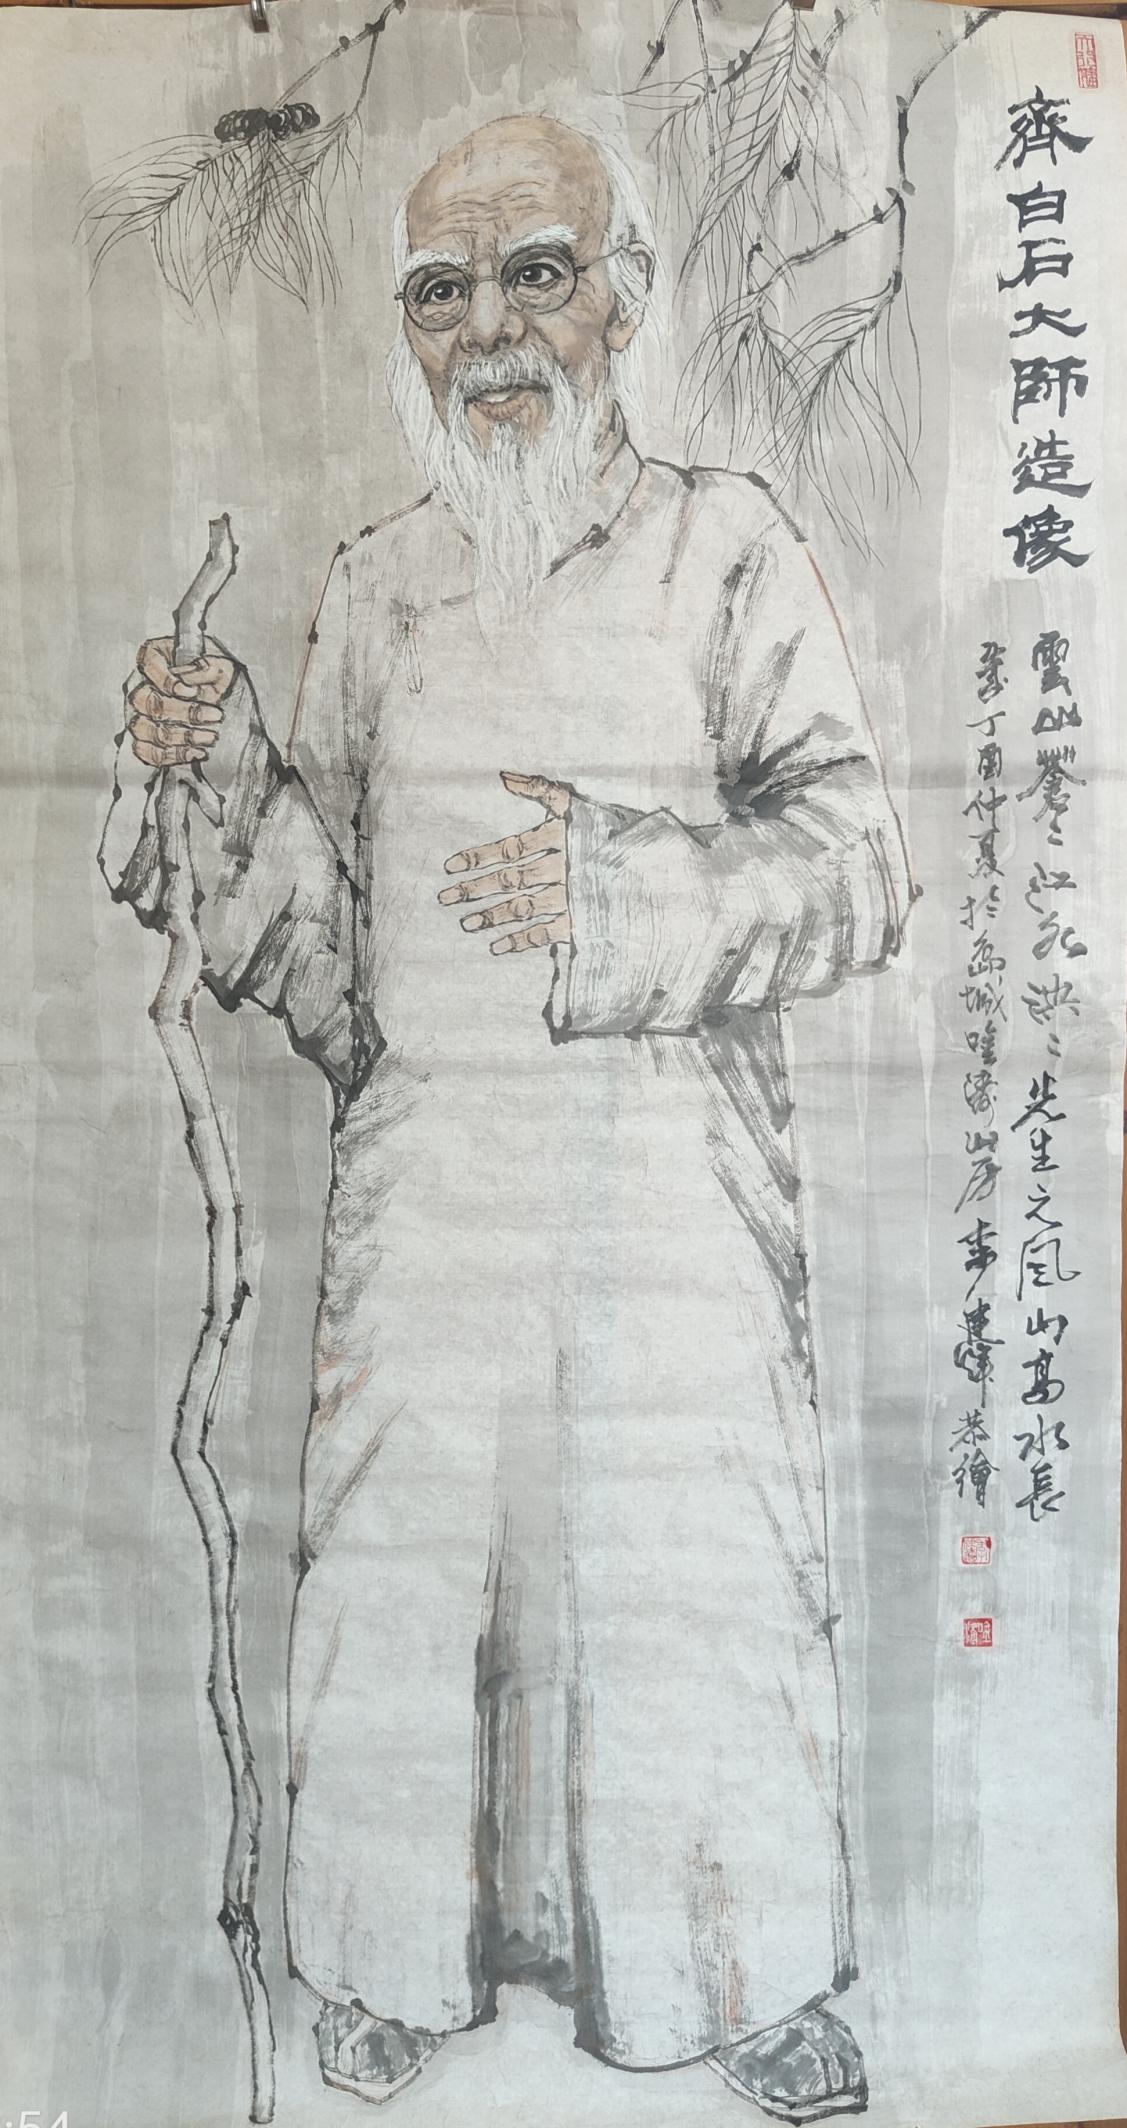 齊白石大師造像
雲山蒼〻江水泱〻先生之風山高水長
歲丁酉仲夏於島城唯濤山房李建輝恭繪
:54